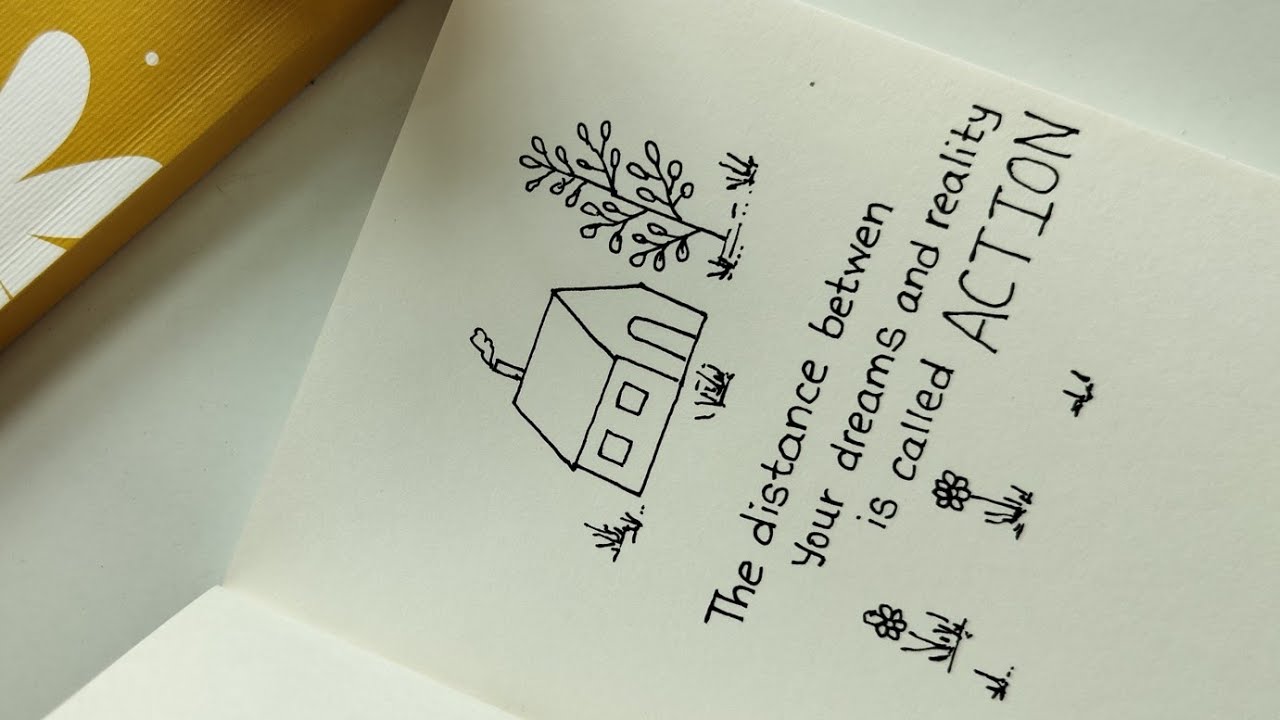 The distance betwen
your dreams and reality
is called ACTION